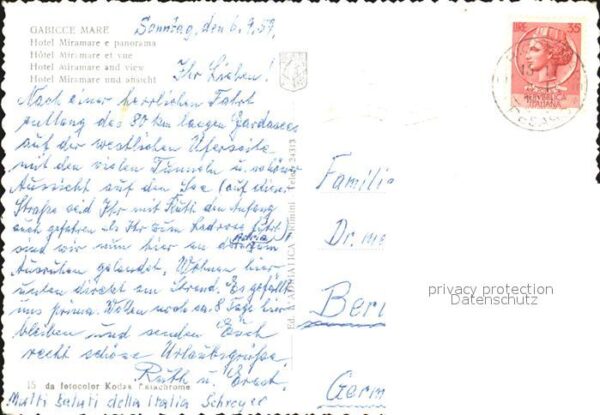 GABICCE MARE
Hotel Miramare e panorama
Hôtel Miramare et vue
Hotel Miramare and view
Hotel Miramare und ansicht
Sonntag, den 6.9.59,
Ihr Lieben!
Nach einer herrlichen Fahrt
entlang des 80 km langen Gardasees
auf der westlichen Uferseite
mit den vielen Tunneln u. schöner
Aussicht auf den See (auf dieser
Straße seid Ihr mit Ruth den Anfang
auch gefahren als Ihr von
sind wir nun hier an der Adria zum
Ausruhen gelandet. Wohnen hier
unten direkt am Strand. Es gefällt
uns prima. Wollen noch ca. 8 Tage hier
bleiben und senden Euch
recht schöne Urlaubsgrüße.
Ruth u. Ernst.
15 da fotocolor Kodak Ektachrome
Multi Saluti della Italia
Ed. L'ADRIATICA Rimini 24313
LIRE 35
REPVBBLICA
ITALIANA
Famili
Dr. me
Berl
Germ
privacy protection
Datenschutz